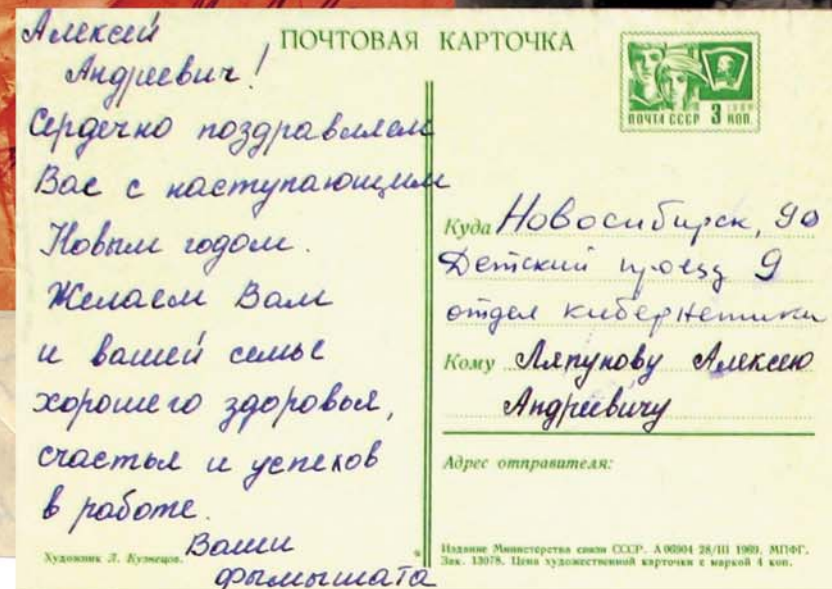 Алексей
Андреевич!
Сердечно поздравляем
Вас с наступающим
Новым годом.
Желаем Вам
и вашей семье
хорошего здоровья,
счастья и успехов
в работе.
Ваши
фымышата
Художник Л. Кузнецов.
ПОЧТОВАЯ КАРТОЧКА
1969
ПОЧТА СССР 3 КОП.
Куда Новосибирск, 90
Детский проезд 9
отдел кибернетики
Кому Ляпунову Алексею
Андреевичу
Адрес отправителя:
Издание Министерства связи СССР. А 06904 28/III 1969. МПФГ.
Зак. 13078. Цена художественной карточки с маркой 4 коп.